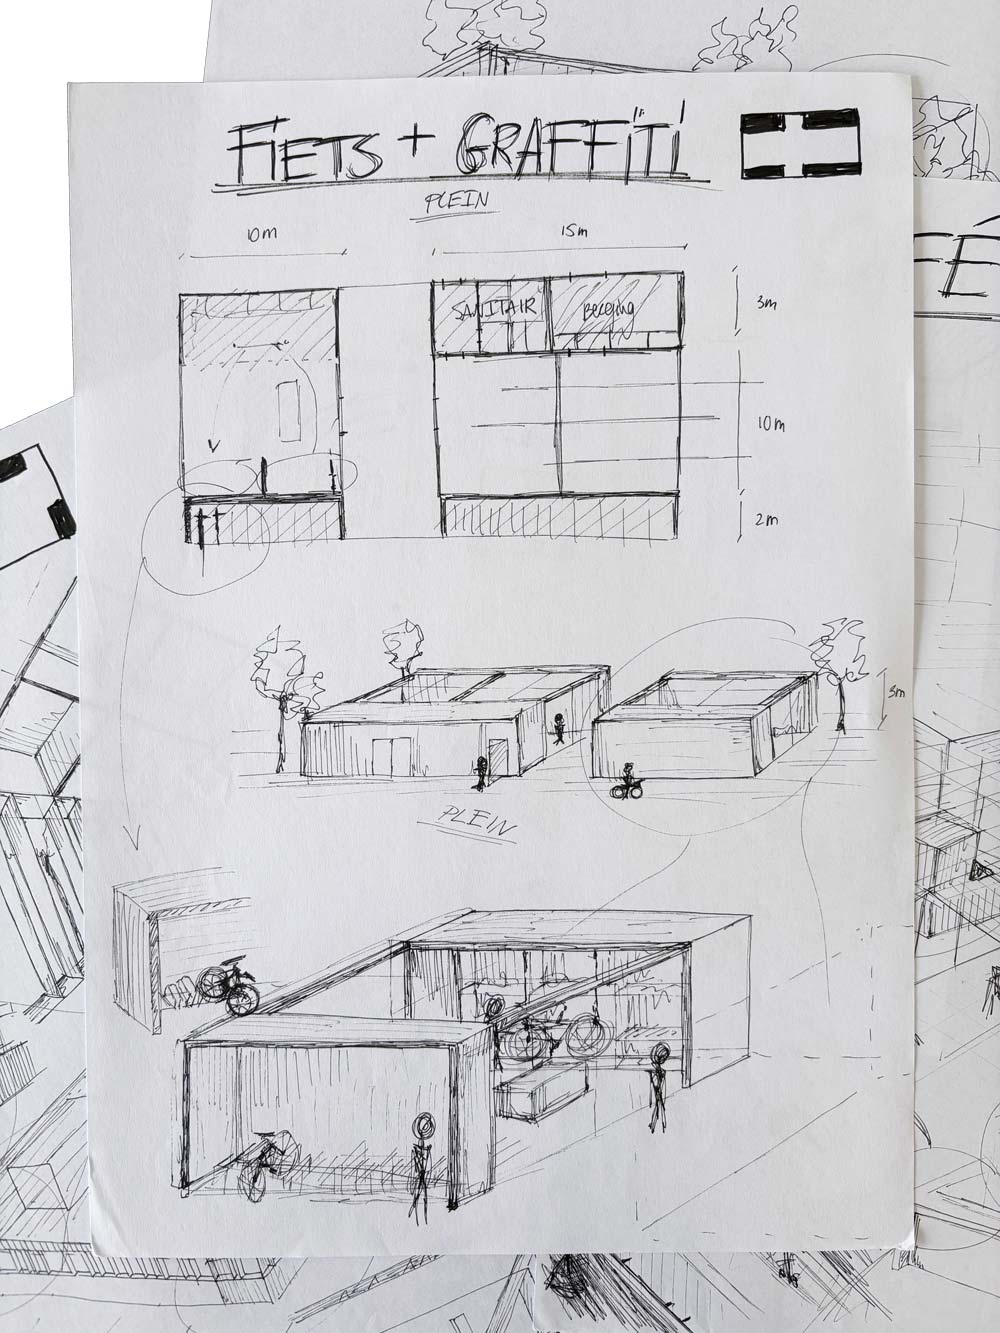 FiETS + GRAFFiTi
PLEIN
10m
15m
SANITAIR
Berging
3m
10m
2m
3m
PLEIN